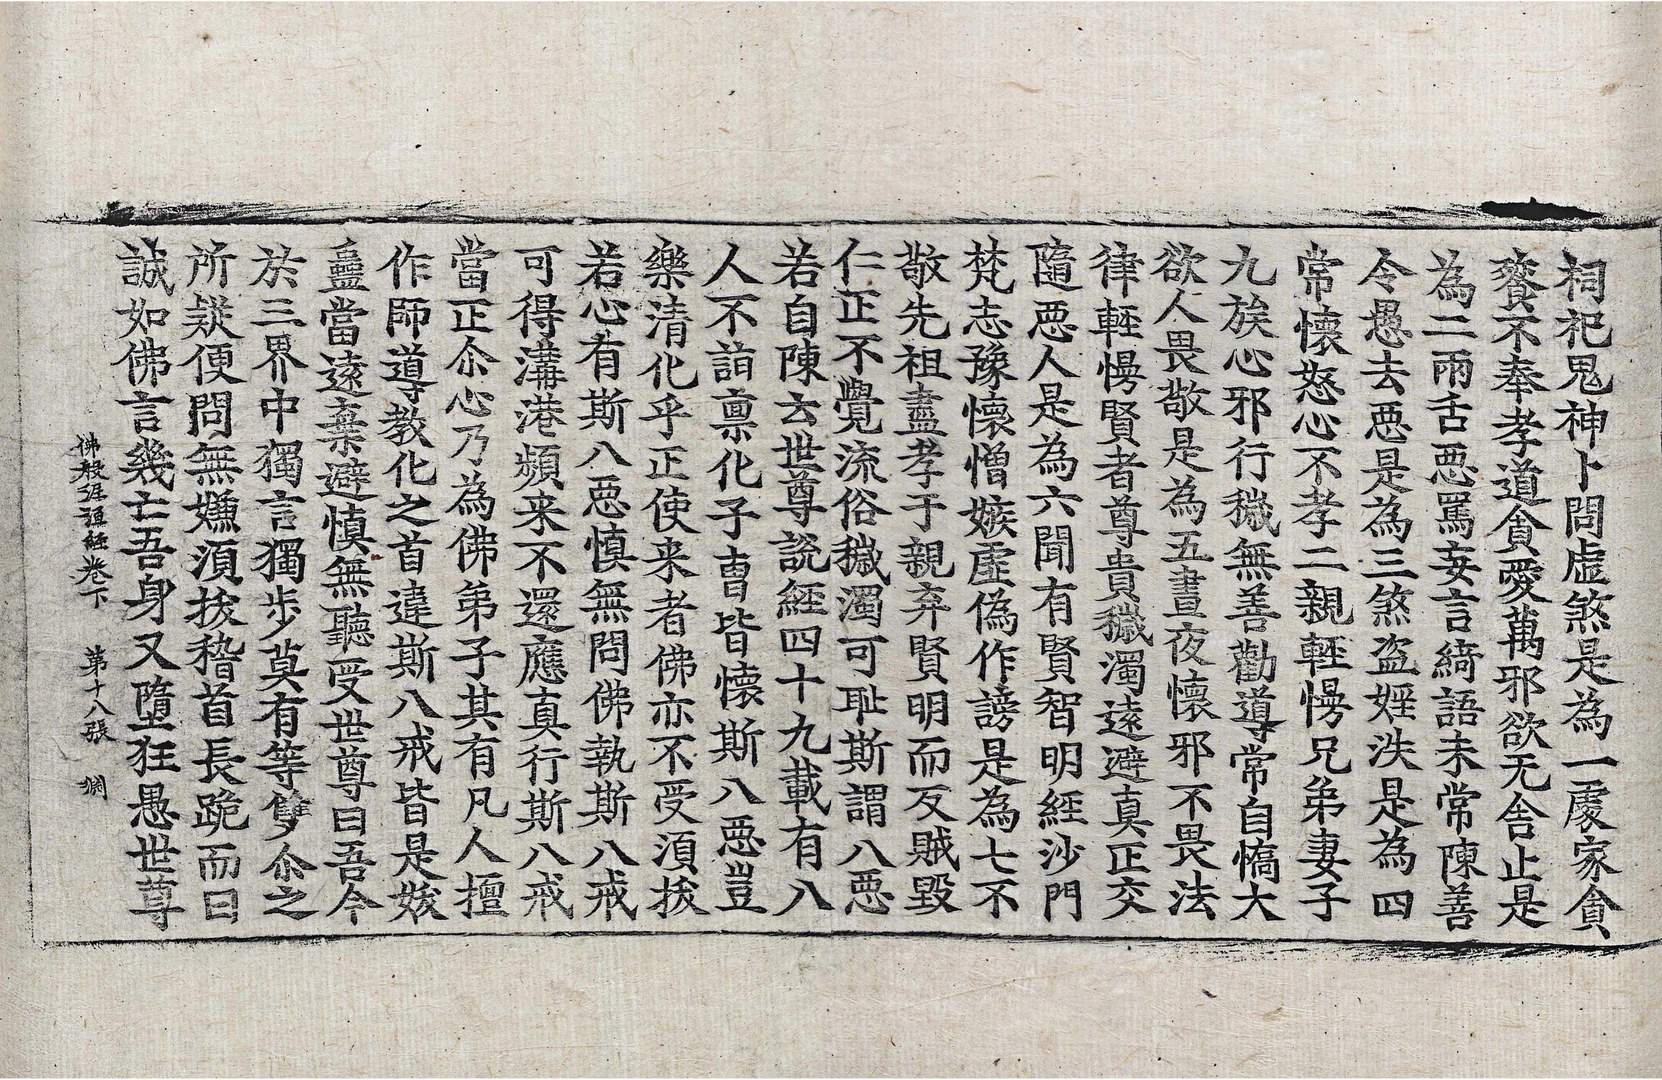 祠祀鬼神卜問虛煞是為一處家貪
賽不奉孝道貪愛萬邪欲无舍止是
為二兩舌惡罵妄言綺語未常陳善
令愚去惡是為三煞盜婬泆是為四
常懷怒心不孝二親輕慢兄弟妻子
九族心邪行穢無善勸導常自憍大
欲人畏敬是為五晝夜懷邪不畏法
律輕慢賢者尊貴穢濁遠避真正交
隨惡人是為六聞有賢智明經沙門
梵志豫懷憎嫉虛偽作謗是為七不
敬先祖盡孝于親弃賢明而反賊毀
仁正不覺流俗穢濁可恥斯謂八惡
若自陳云世尊說經四十九載有八
人不詣稟化子曹皆懷斯八惡豈
樂清化乎正使来者佛亦不受須拔
若心有斯八惡慎無問佛執斯八戒
可得溝港頻来不還應真行斯八戒
當正尒心乃為佛弟子其有凡人擅
作師導教化之首違斯八戒皆是妭
蠱當遠棄避慎無聽受世尊曰吾今
於三界中獨言獨步莫有等雙尒之
所疑便問無嫌須拔稽首長跪而曰
誠如佛言幾亡吾身又墮狂愚世尊
佛般泥洹經卷下 第十八張